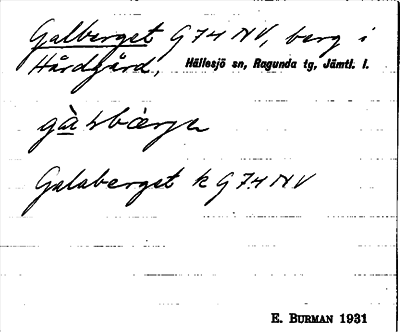 Galberget G74 NV, berg i
Hårdgård, Hällesjö sn, Ragunda tg, Jämtl. l.
Galaberget k G 74 NV
E. BURMAN 1931